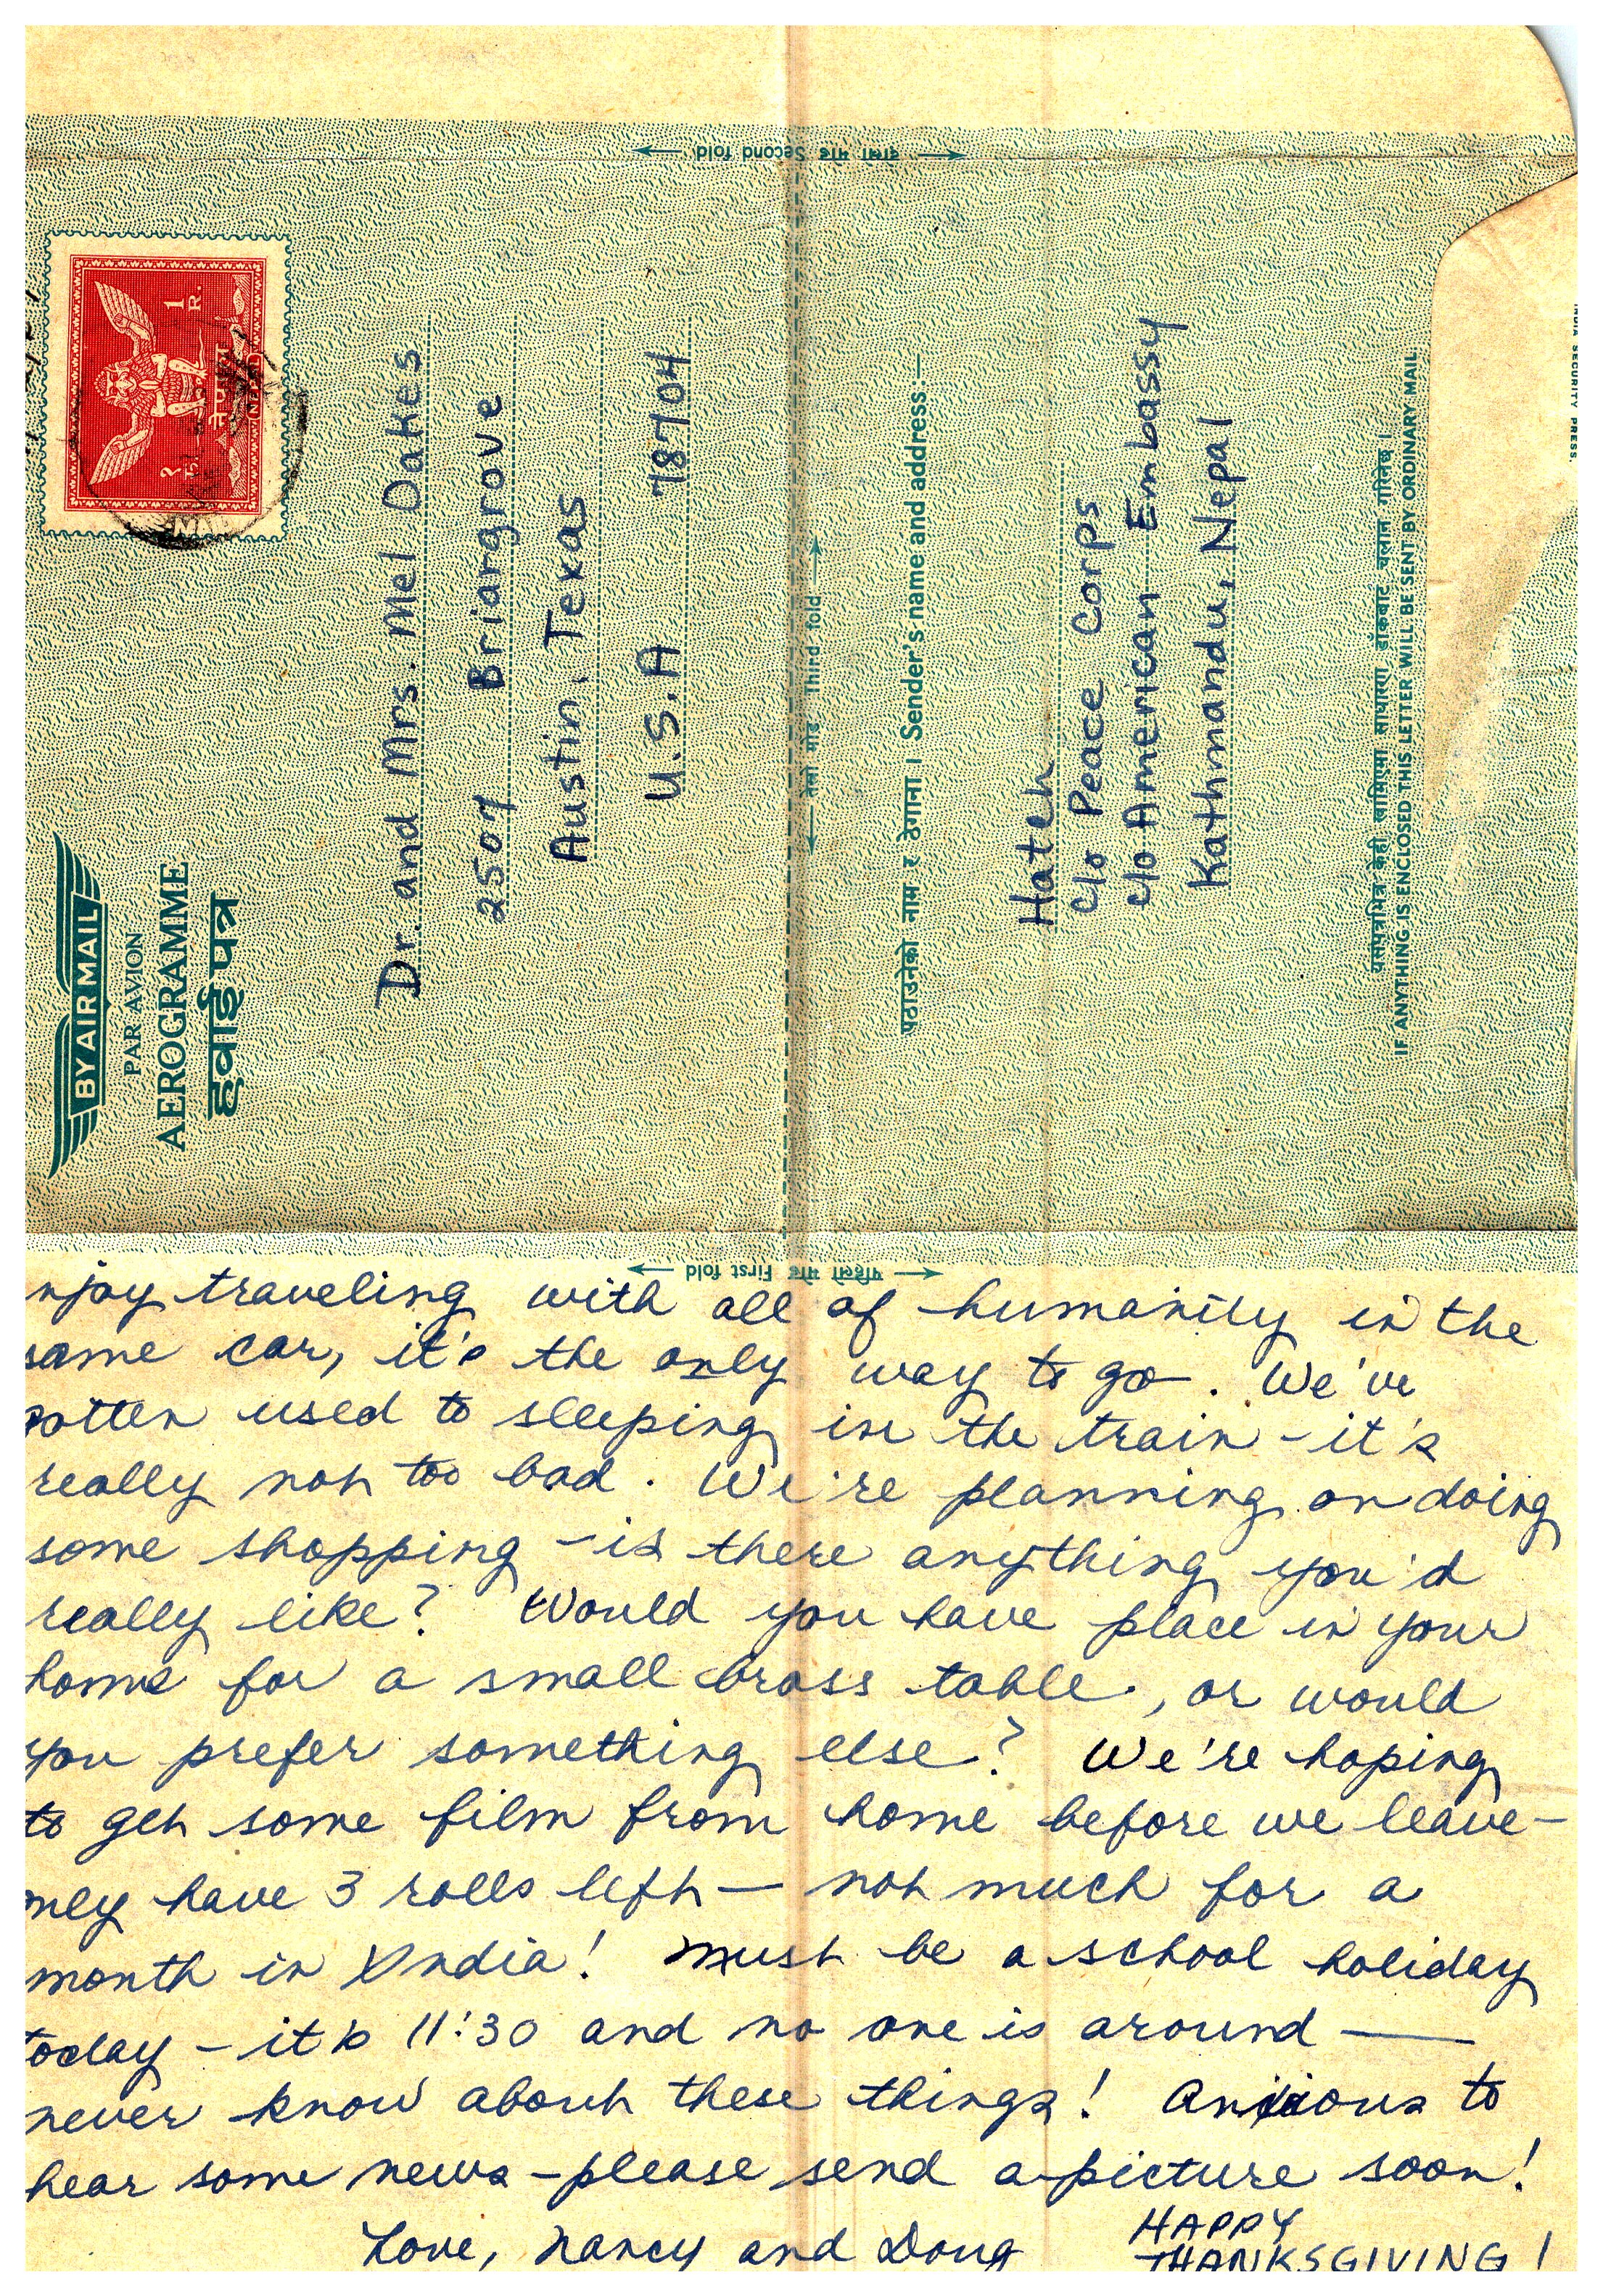 दोस्रो मोड Second fold
BY AIR MAIL
PAR AVION
AEROGRAMME
हवाई पत्र
१ रु.
1 R.
नेपाल
NEPAL
Dr. and Mrs. Mel Oakes
2507 Briargrove
Austin, Texas
U.S.A 78704
तेस्रो मोड Third fold
पठाउनेको नाम र ठेगाना । Sender's name and address:—
Hatch
c/o Peace Corps
c/o American Embassy
Kathmandu, Nepal
यसपत्रभित्र केही खामिएमा साधारण डाँकबाट चलान गरिनेछ ।
IF ANYTHING IS ENCLOSED THIS LETTER WILL BE SENT BY ORDINARY MAIL.
INDIA SECURITY PRESS.
पहिलो मोड First fold
njoy traveling with all of humanity in the
same car, it's the only way to go. We've
gotten used to sleeping in the train - it's
really not too bad. We're planning on doing
some shopping - is there anything you'd
really like? Would you have place in your
home for a small brass table, or would
you prefer something else? We're hoping
to get some film from home before we leave—
nly have 3 rolls left — not much for a
month in India! Must be a school holiday
today - it's 11:30 and no one is around —
never know about these things! Anxious to
hear some news - please send a picture soon!
Love, Nancy and Doug
HAPPY
THANKSGIVING!